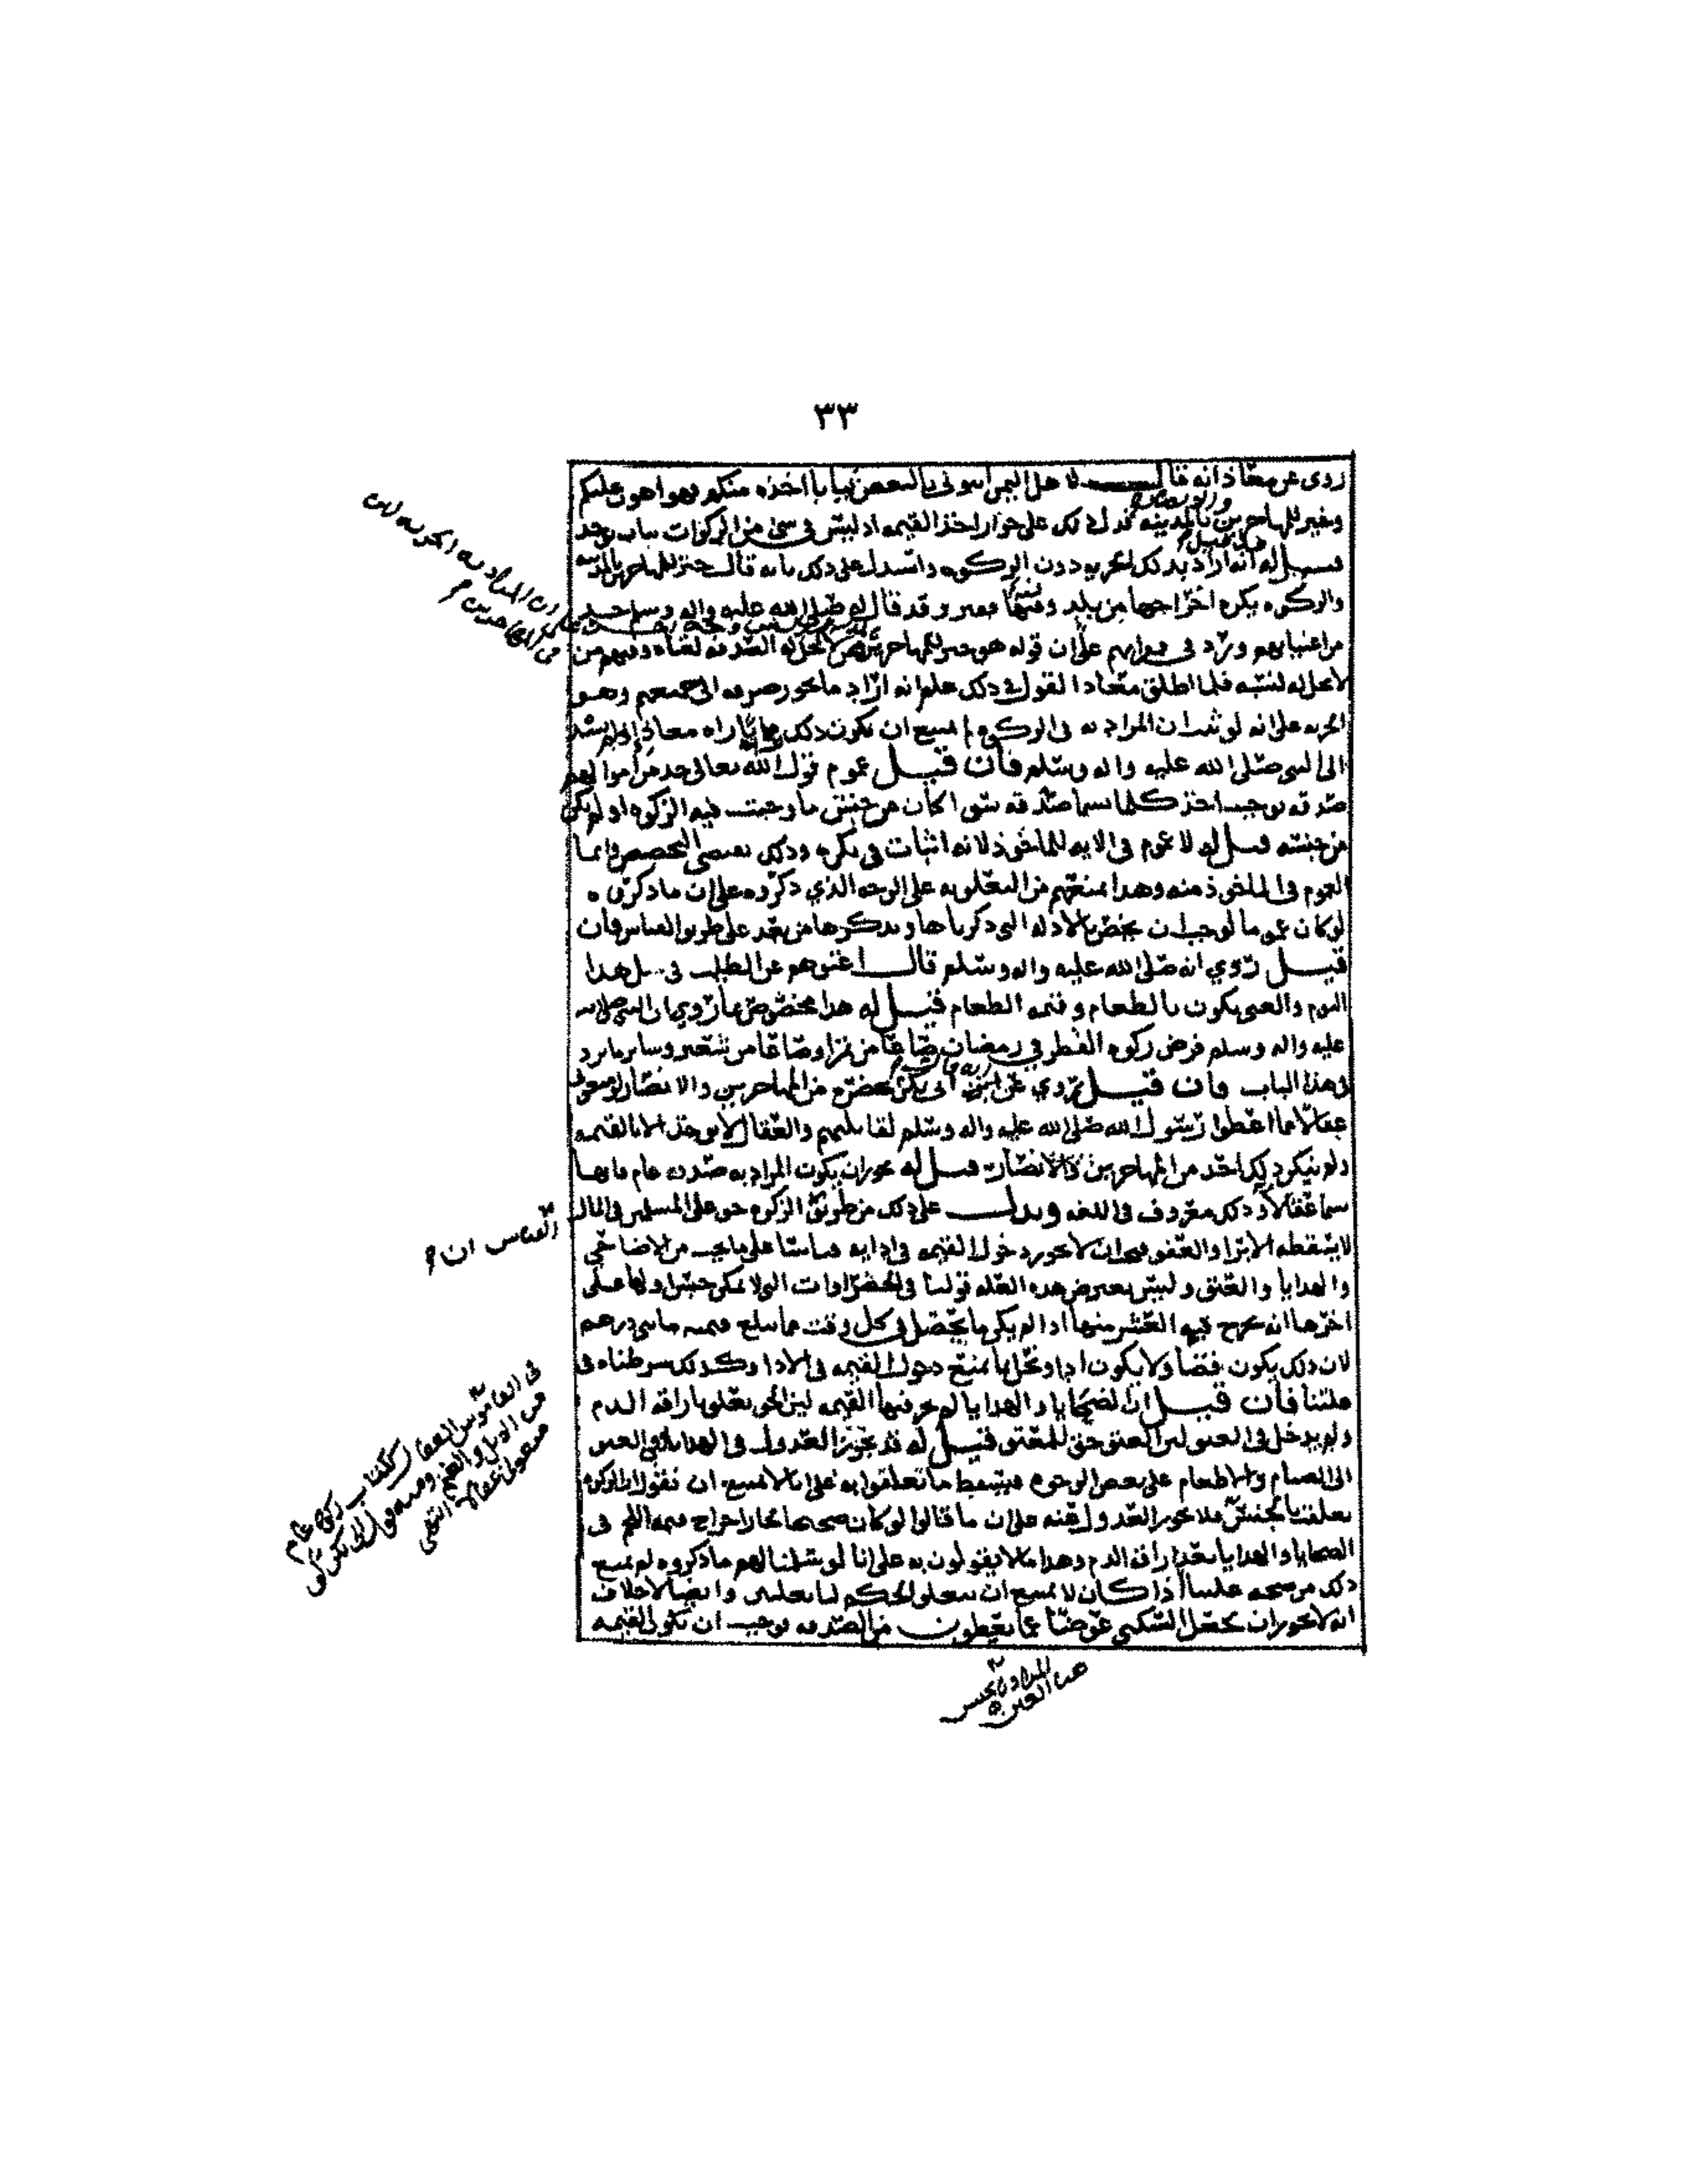 ٣٣
روى عن معاذ انه قال لا هل اليمن ايتوني بالـ ثياب اخذه منكم فهو اهون عليكم
وخير للمهاجرين بالمدينه فدل ذلك على جواز اخذ القيمه اذ ليس في شي من الزكوات ثياب توخذ
قيل له انه اراد بذلك الجزيه دون الزكوه واستدل على ذلك بانه قال خير للمهاجرين بالمدينه
والزكوه يكره اخراجها من بلد وفيها فقير وقد قال له صلى الله عليه واله وسلم خذ
من اغنيائهم ورد في فقرائهم على ان قوله هو خير للمهاجرين لا تحل له الصدقه لغناه وفيهم من
لا تحل له لنسبه فلما اطلق معاذ القول في ذلك علم انه اراد ما يجوز صرفه الى جميعهم وهو
الجزيه على انه لو ثبت ان المراد به في الزكوه لم يمتنع ان يكون ذلك مما راه معاذ ولم يسنده
الى النبي صلى الله عليه واله وسلم فان قيل عموم قول الله تعالى خذ من اموالهم
صدقه يوجب اخذ كلما يسما صدقه سوا كان من جنس ما وجبت فيه الزكوه او لم يكن
من جنسه قيل له لا عموم في الايه للماخوذ لانه اثبات في نكره وذلك يقتضي التخصيص وانما
العموم في الماخوذ منه وهذا يمنعهم من التعلق به على الوجه الذي ذكروه على ان ما ذكروه
لو كان عموما لوجب ان يخص بالادله التي ذكرناها ونذكرها من بعد على طريق القياس فان
قيل روي انه صلى الله عليه واله وسلم قال اغنوهم عن الطلب في مثل هذا
اليوم والغنى يكون بالطعام وقيمه الطعام قيل له هذا مخصوص بما روي ان النبي صلى الله
عليه واله وسلم فرض زكوه الفطر في رمضان صاعا من تمر او صاعا من شعير وسائر ما يرد
في هذا الباب فان قيل روي عن ابي بكر بحضره من المهاجرين والانصار لو منعوني
عقالا مما اعطوا رسول الله صلى الله عليه واله وسلم لقاتلتهم والعقال لا يوخذ الا بالقيمه
ولم ينكر ذلك احد من المهاجرين والانصار قيل له يجوز ان يكون المراد به صدقه عام فانها
تسما عقالا وذلك معروف في اللغه ويدل على ذلك من طريق الزكوه حق على المسلمين في المال
لا يسقطه الابرا والعفو فيجب ان لا يجوز دخول القيمه في ادايه قياسا على ما يجب من الاضاحي
والهدايا والعتق وليس يعترض هذه العله قولنا في الخضراوات التي لا يمكن حبس اولها على
اخرها انه يخرج قيمه العشر منها اذا لم يكن ما يحصل في كل وقت مما يبلغ قيمته مايتي درهم
لان ذلك يكون قضا ولا يكون ادا ونحن انما نمنع دخول القيمه في الادا وكذلك شرطناه في
علتنا فان قيل ان الضحايا والهدايا لم يجز فيها القيمه لان الحق تعلق باراقه الدم
ولم يدخل في العتق لان العتق حق للمعتق قيل له قد يجوز العدول في الهدايا وفي العتق
الى الصيام والاطعام على بعض الوجوه فيسقط ما تعلقوا به على انا لا نمتنع ان نقول ان الزكوه
تعلقت بالجنس فلا يجوز العدول عنه على ان ما قالوا لو كان صحيحا لجاز اخراج قيمه اللحم في
الضحايا والهدايا بعد اراقه الدم وهذا ما لا يقولون به على انا لو سلمنا لهم ما ذكروه لم يمنع
ذلك من صحه علتنا اذا كان لا يمتنع ان يتعلق الحكم لنا بعلتين وايضا لا خلاف
انه لا يجوز ان يجعل السكنى عوضا عما يعطون من الصدقه فوجب ان تكون القيمه
القياس ان
في القاموس العقال ككتاب زكوه عام
من الابل والغنم ومنه قول ابي بكر لو
منعوني عقالا انتهى